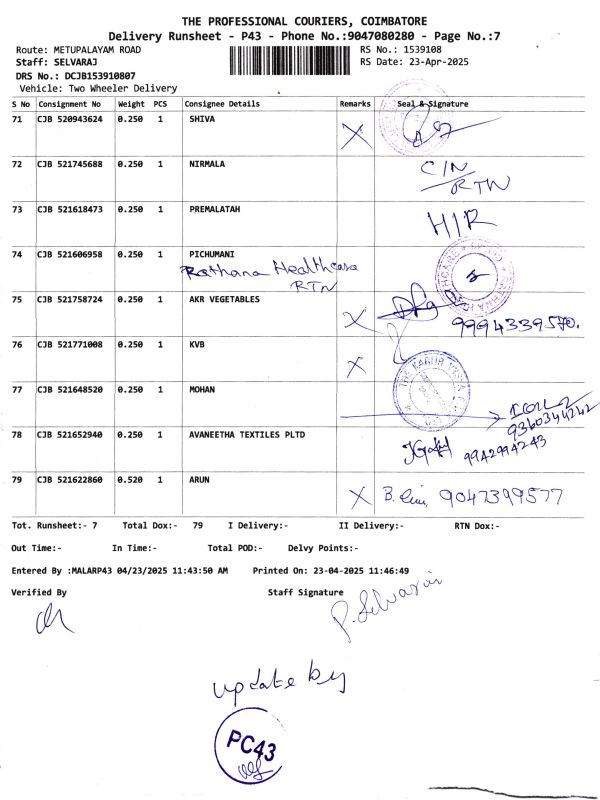 THE PROFESSIONAL COURIERS, COIMBATORE
Delivery Runsheet - P43 - Phone No.:9047080280 - Page No.:7
Route: METUPALAYAM ROAD RS No.: 1539108
Staff: SELVARAJ RS Date: 23-Apr-2025
DRS No.: DCJB153910807
Vehicle: Two Wheeler Delivery
S No Consignment No Weight PCS Consignee Details Remarks Seal & Signature
71 CJB 520943624 0.250 1 SHIVA X
72 CJB 521745688 0.250 1 NIRMALA C/N
RTN
73 CJB 521618473 0.250 1 PREMALATAH H/R
74 CJB 521606958 0.250 1 PICHUMANI
Rathana Healthcare
RTN
75 CJB 521758724 0.250 1 AKR VEGETABLES X
9994339570.
76 CJB 521771008 0.250 1 KVB X
THE KARUR VYSYA
77 CJB 521648520 0.250 1 MOHAN
9360344242
78 CJB 521652940 0.250 1 AVANEETHA TEXTILES PLTD
9942994243
79 CJB 521622860 0.520 1 ARUN X B. 9047399577
Tot. Runsheet:- 7 Total Dox:- 79 I Delivery:- II Delivery:- RTN Dox:-
Out Time:- In Time:- Total POD:- Delvy Points:-
Entered By :MALARP43 04/23/2025 11:43:50 AM Printed On: 23-04-2025 11:46:49
Verified By Staff Signature
P. Selvaraj
update by
PC43